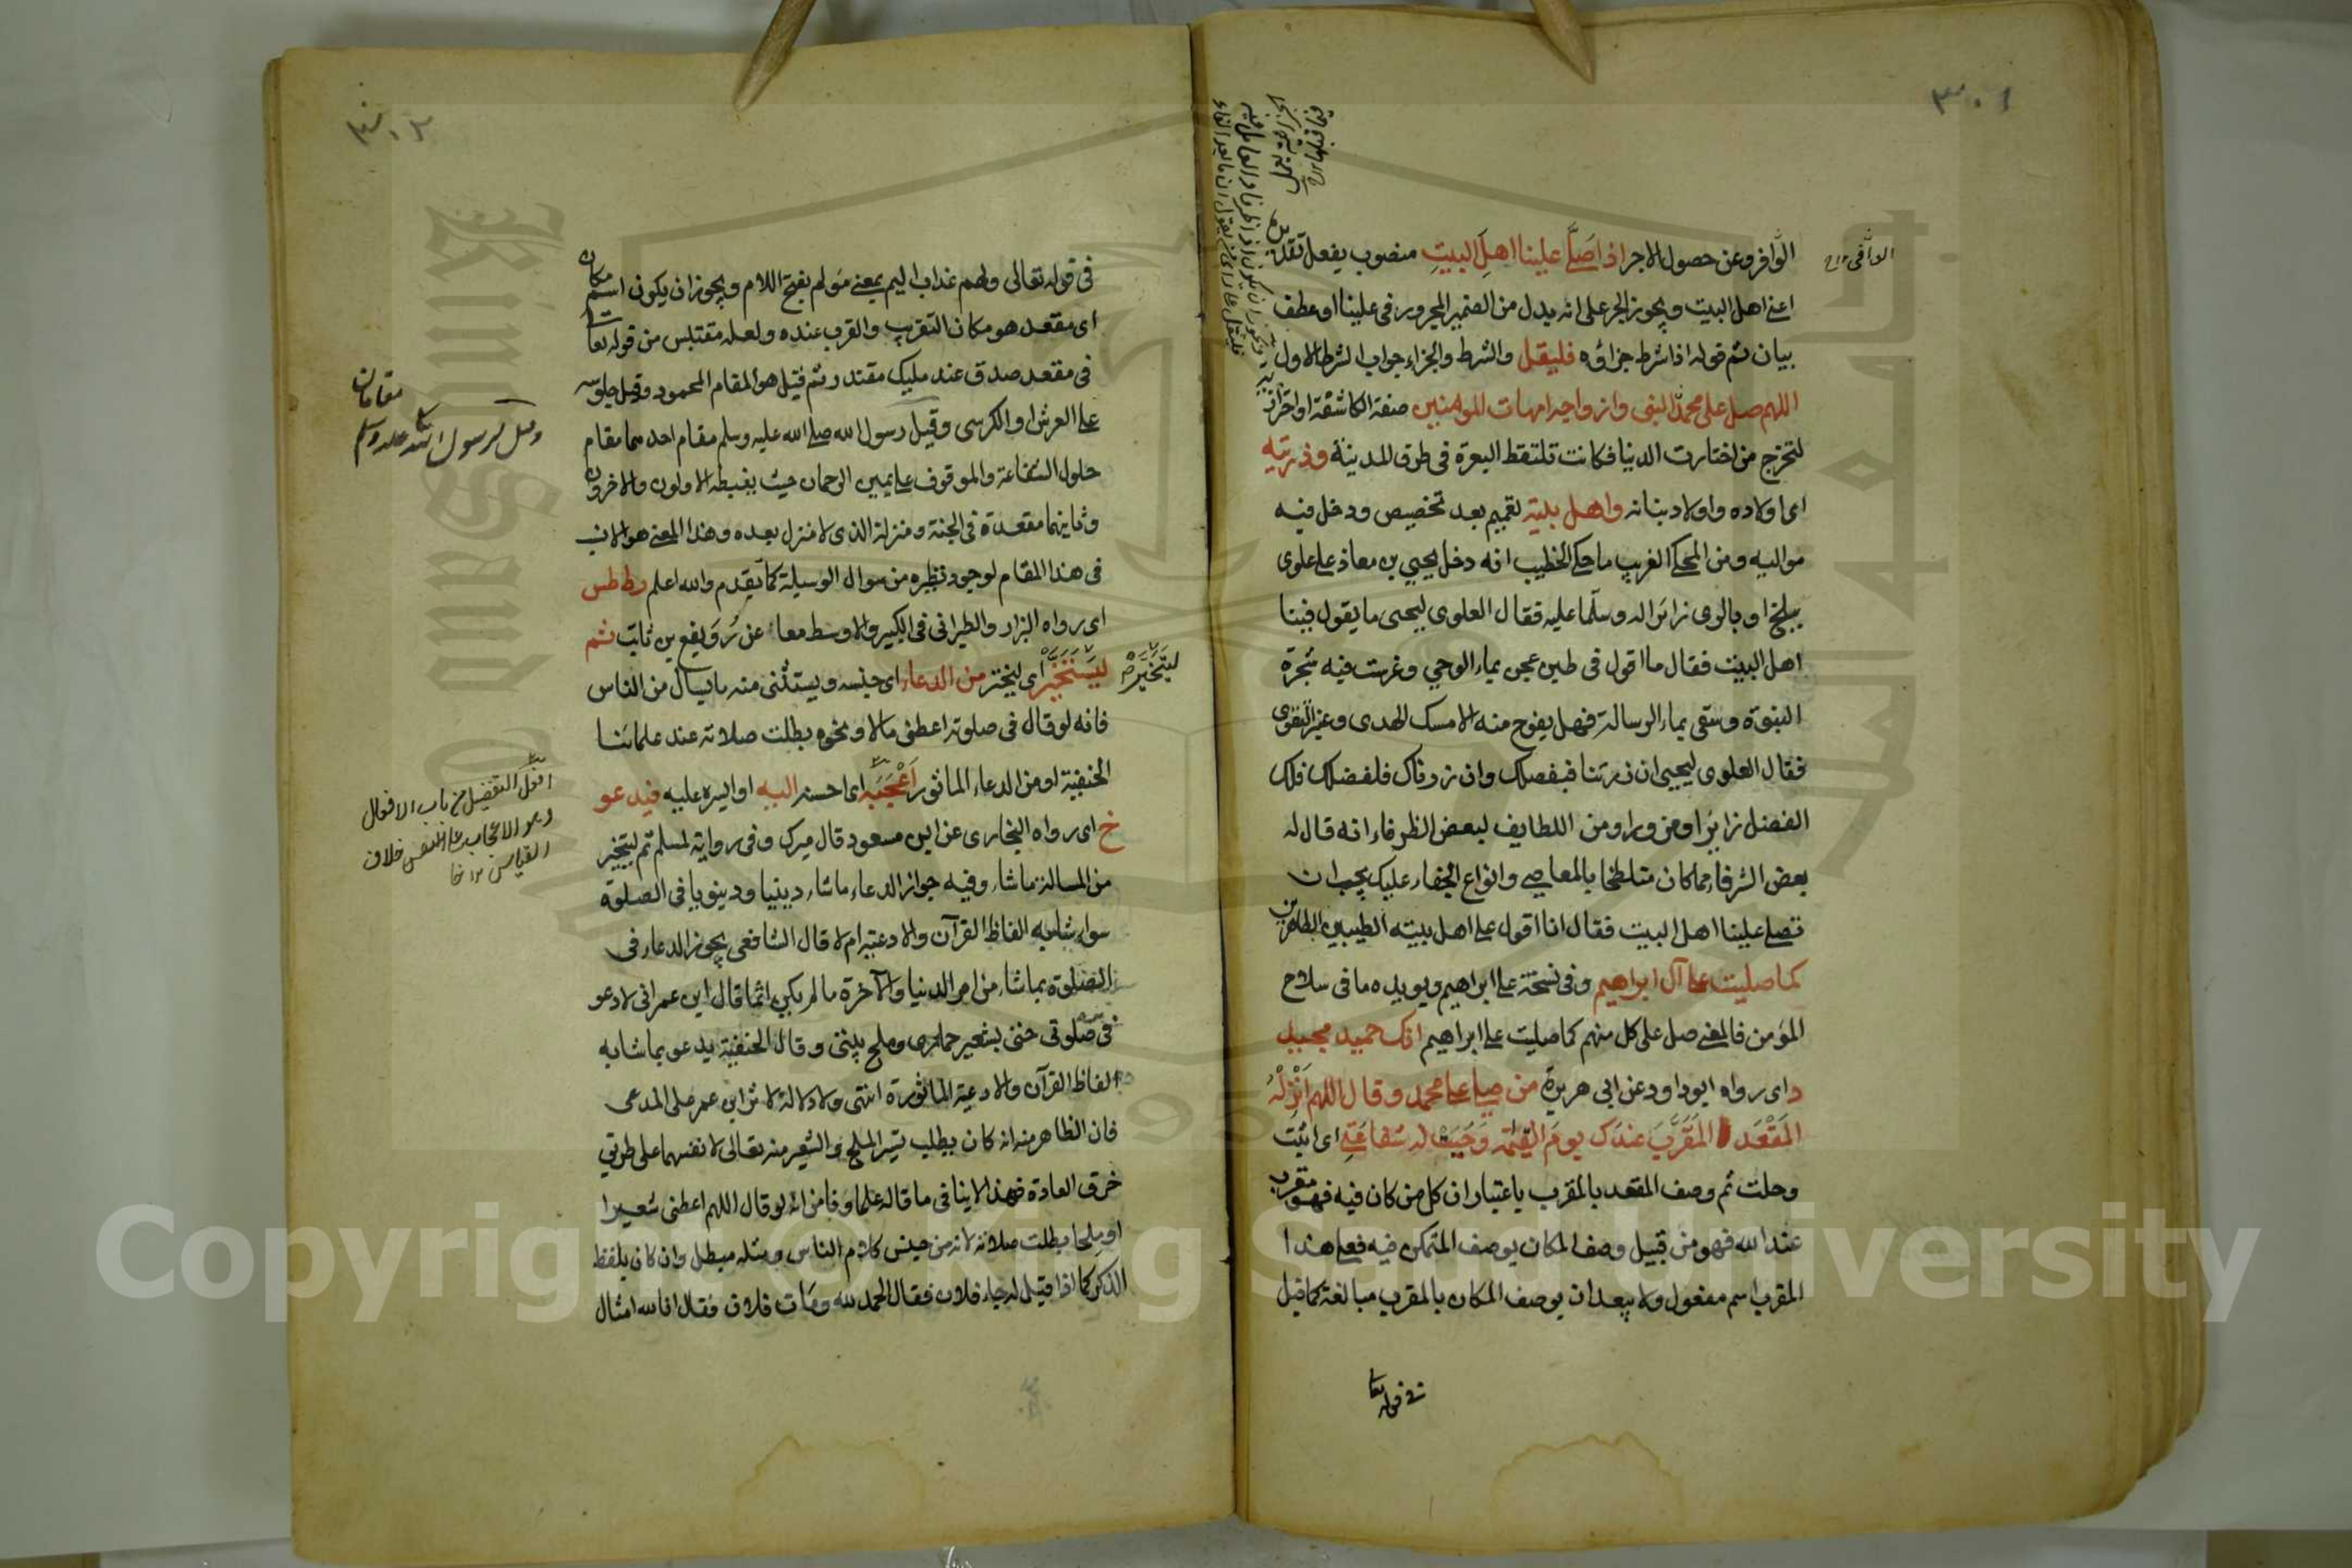 ٣٠١
الوافر وعن حصول الاجر اذا صلى علينا اهل البيت منصوب بفعل تقديره
اعنى اهل البيت ويجوز الجر على انه بدل من الضمير المجرور فى علينا او عطف
بيان ثم قوله اذا شرط جزاؤه فليقل والشرط والجزاء جواب الشرط الاول
اللهم صل على محمد النبى وازواجه امهات المؤمنين صفة كاشفة او احتراز
لتخرج من اختارت الدنيا فكانت تلتقط البعرة فى طرق المدينة وذريته
اى اولاده واولاد بناته واهل بيته تعميم بعد تخصيص ودخل فيه
مواليه ومن المحكى الغريب ما حكى الخطيب انه دخل يحيى بن معاذ على علوى
ببلخ او بالرى زائرا له وسلما عليه فقال العلوى ليحيى ما يقول فينا
اهل البيت فقال ما اقول فى طين عجن بماء الوحى وغرست فيه شجرة
النبوة وسقى بماء الرسالة فهل يفوح منه الا مسك الهدى وعنبر التقوى
فقال العلوى ليحيى ان زرتنا فبفضلك وان زرناك فلفضلك فلك
الفضل زائرا ومزورا ومن اللطايف لبعض الظرفاء انه قال له
بعض الشرفاء مما كان متلطخا بالمعاصى وانواع الجفاء عليك يجب ان
تصلى علينا اهل البيت فقال انا اقول على اهل بيته الطيبين الطاهرين
كما صليت على آل ابراهيم وفى نسخة على ابراهيم ويويده ما فى سلاح
المؤمن فالمعنى صل على كل منهم كما صليت على ابراهيم انك حميد مجيد
د اى رواه ابو داود عن ابى هريرة من صلى على محمد وقال اللهم انزله
المقعد المقرب عندك يوم القيمة وجبت له شفاعتى اى اثبت
وحلت ثم وصف المقعد بالمقرب باعتبار ان كل من كان فيه فهو مقرب
عند الله فهو من قبيل وصف المكان بوصف المتمكن فيه فعلى هذا
المقرب اسم مفعول ولا يبعد ان يوصف المكان بالمقرب مبالغة كما قيل
فى قوله تعا
٣٠٢
فى قوله تعالى ولهم عذاب اليم بمعنى مولم بفتح اللام ويجوز ان يكون اسم مكان
اى مقعد هو مكان التقريب والقرب عنده ولعله مقتبس من قوله تعا
فى مقعد صدق عند مليك مقتدر ثم قيل هو المقام المحمود وقيل جلوسه
على العرش او الكرسى وقيل رسول الله صلى الله عليه وسلم مقام احدهما مقام
حلول الشفاعة والوقوف على يمين الرحمان حيث يغبطه الاولون والاخرون
وثانيهما مقعدة فى الجنة ومنزلة الذى لا منزل بعده وهذا المعنى هو الانسب
فى هذا المقام لوجود نظيره من سوال الوسيلة كما تقدم والله اعلم ر ط طس
اى رواه البزار والطبرانى فى الكبير والاوسط معا عن رويفع بن ثابت ثم
ليتخير اى ليختر من الدعاء اى جنسه ويستثنى منه ما يسال من الناس
ليتخير
فانه لو قال فى صلوته اعطنى مالا ونحوه بطلت صلاته عند علمائنا
الحنفية او من الدعاء الماثور اعجبه اى احسنه اليه او ايسره عليه فيدعو
خ اى رواه البخارى عن ابن مسعود قال ميرك وفى رواية لمسلم ثم ليتخير
من المسالة ما شاء وفيه جواز الدعاء ما شاء دينيا ودنيويا فى الصلوة
سواء شابه الفاظ القرآن والادعية ام لا قال الشافعى يجوز الدعاء فى
الصلوة بما شاء من امر الدنيا والآخرة ما لم يكن اثما قال ابن عمر انى لادعو
فى صلوتى حتى بشعير حمارى وملح بيتى وقال الحنفية يدعو بما شابه
الفاظ القرآن والادعية الماثورة انتهى ولا دلالة لاثر ابن عمر على المدعى
فان الظاهر منه انه كان يطلب تيسر الملح والشعير منه تعالى لا نفسهما على طريق
خرق العادة فهذا لا ينافى ما قاله علماؤنا من انه لو قال اللهم اعطنى شعيرا
او ملحا بطلت صلاته لانه من جنس كلام الناس ومثله مبطل وان كان بلفظ
الذكر كما اذا قيل له جاء فلان فقال الحمد لله ومات فلان فقال انا لله امثال
مقامان
وقيل لرسول الله صلى الله عليه وسلم
افعل التفضيل من باب الافعال
وهو الاعجاب على خلاف
القياس
Copyright © King Saud University